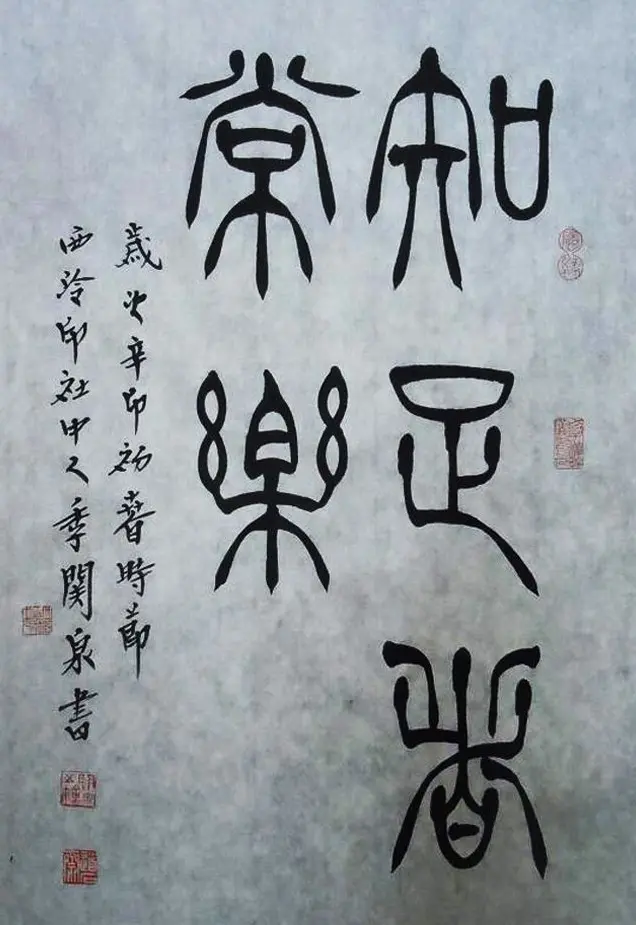 知足者
常樂
歲次辛卯初春時節
西泠印社中人季関泉書